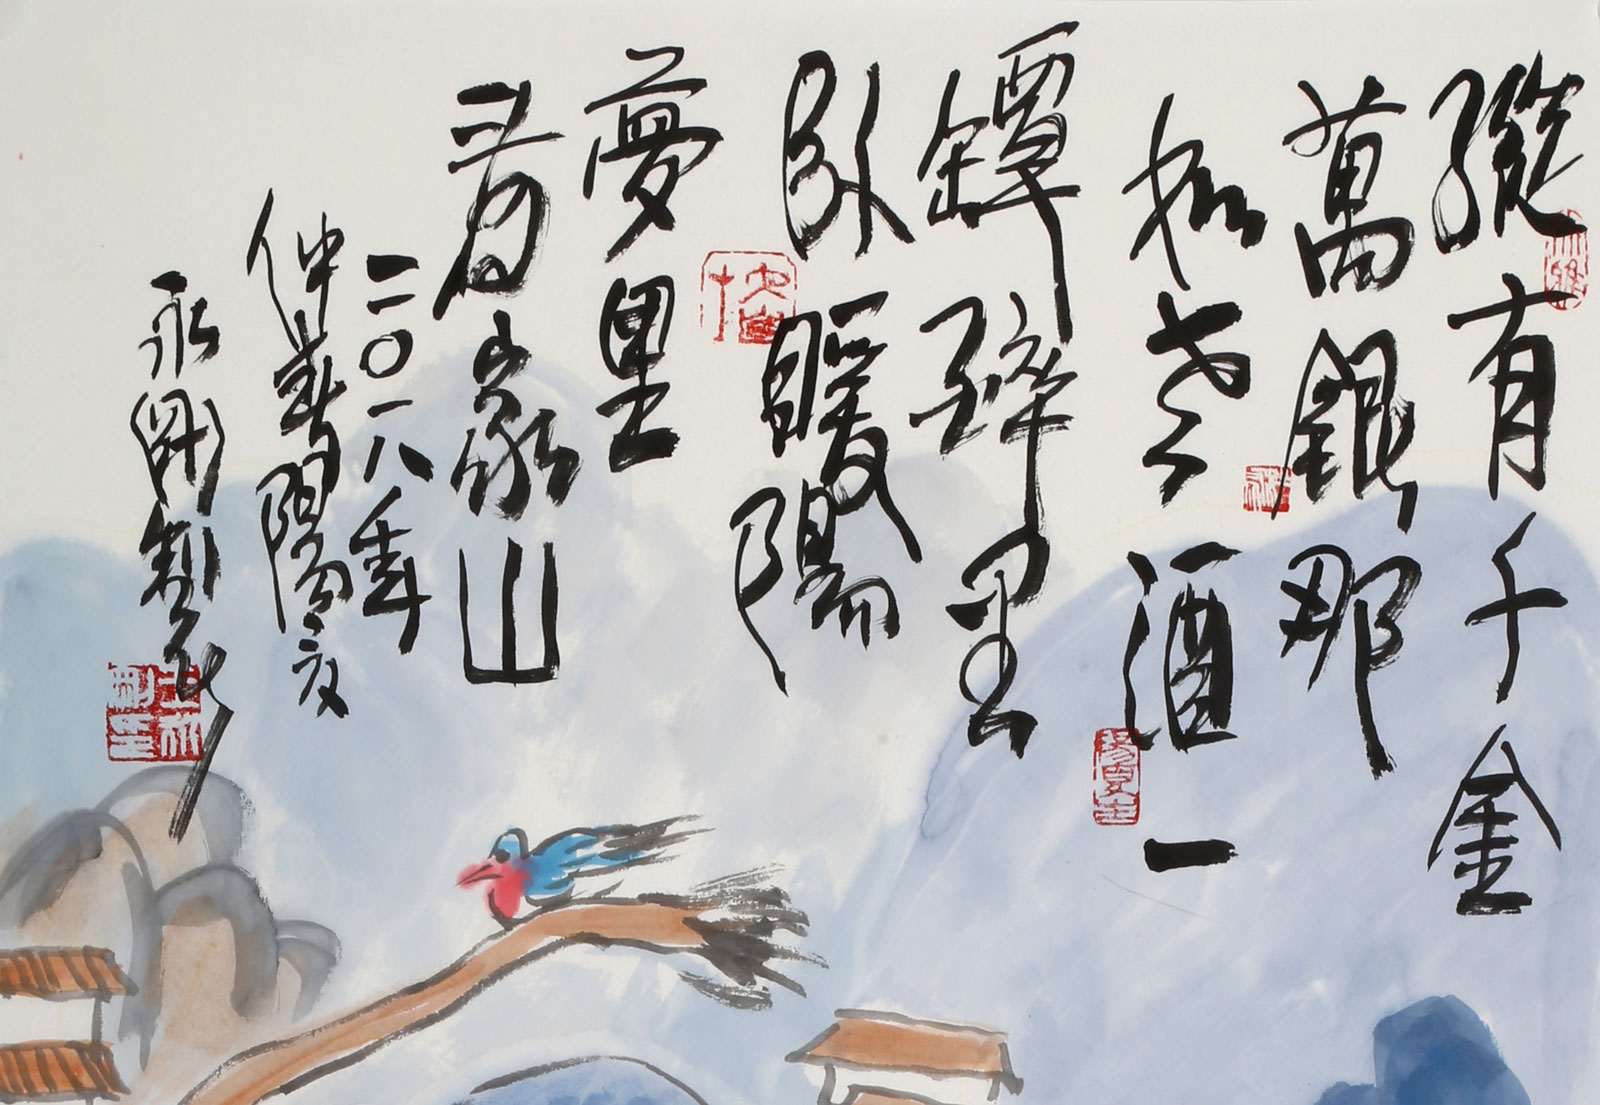 縱有千金
萬銀那
如老酒一
罈醉里
臥暖陽
夢里
看家山
二〇一八年
仲春陽
永剛製